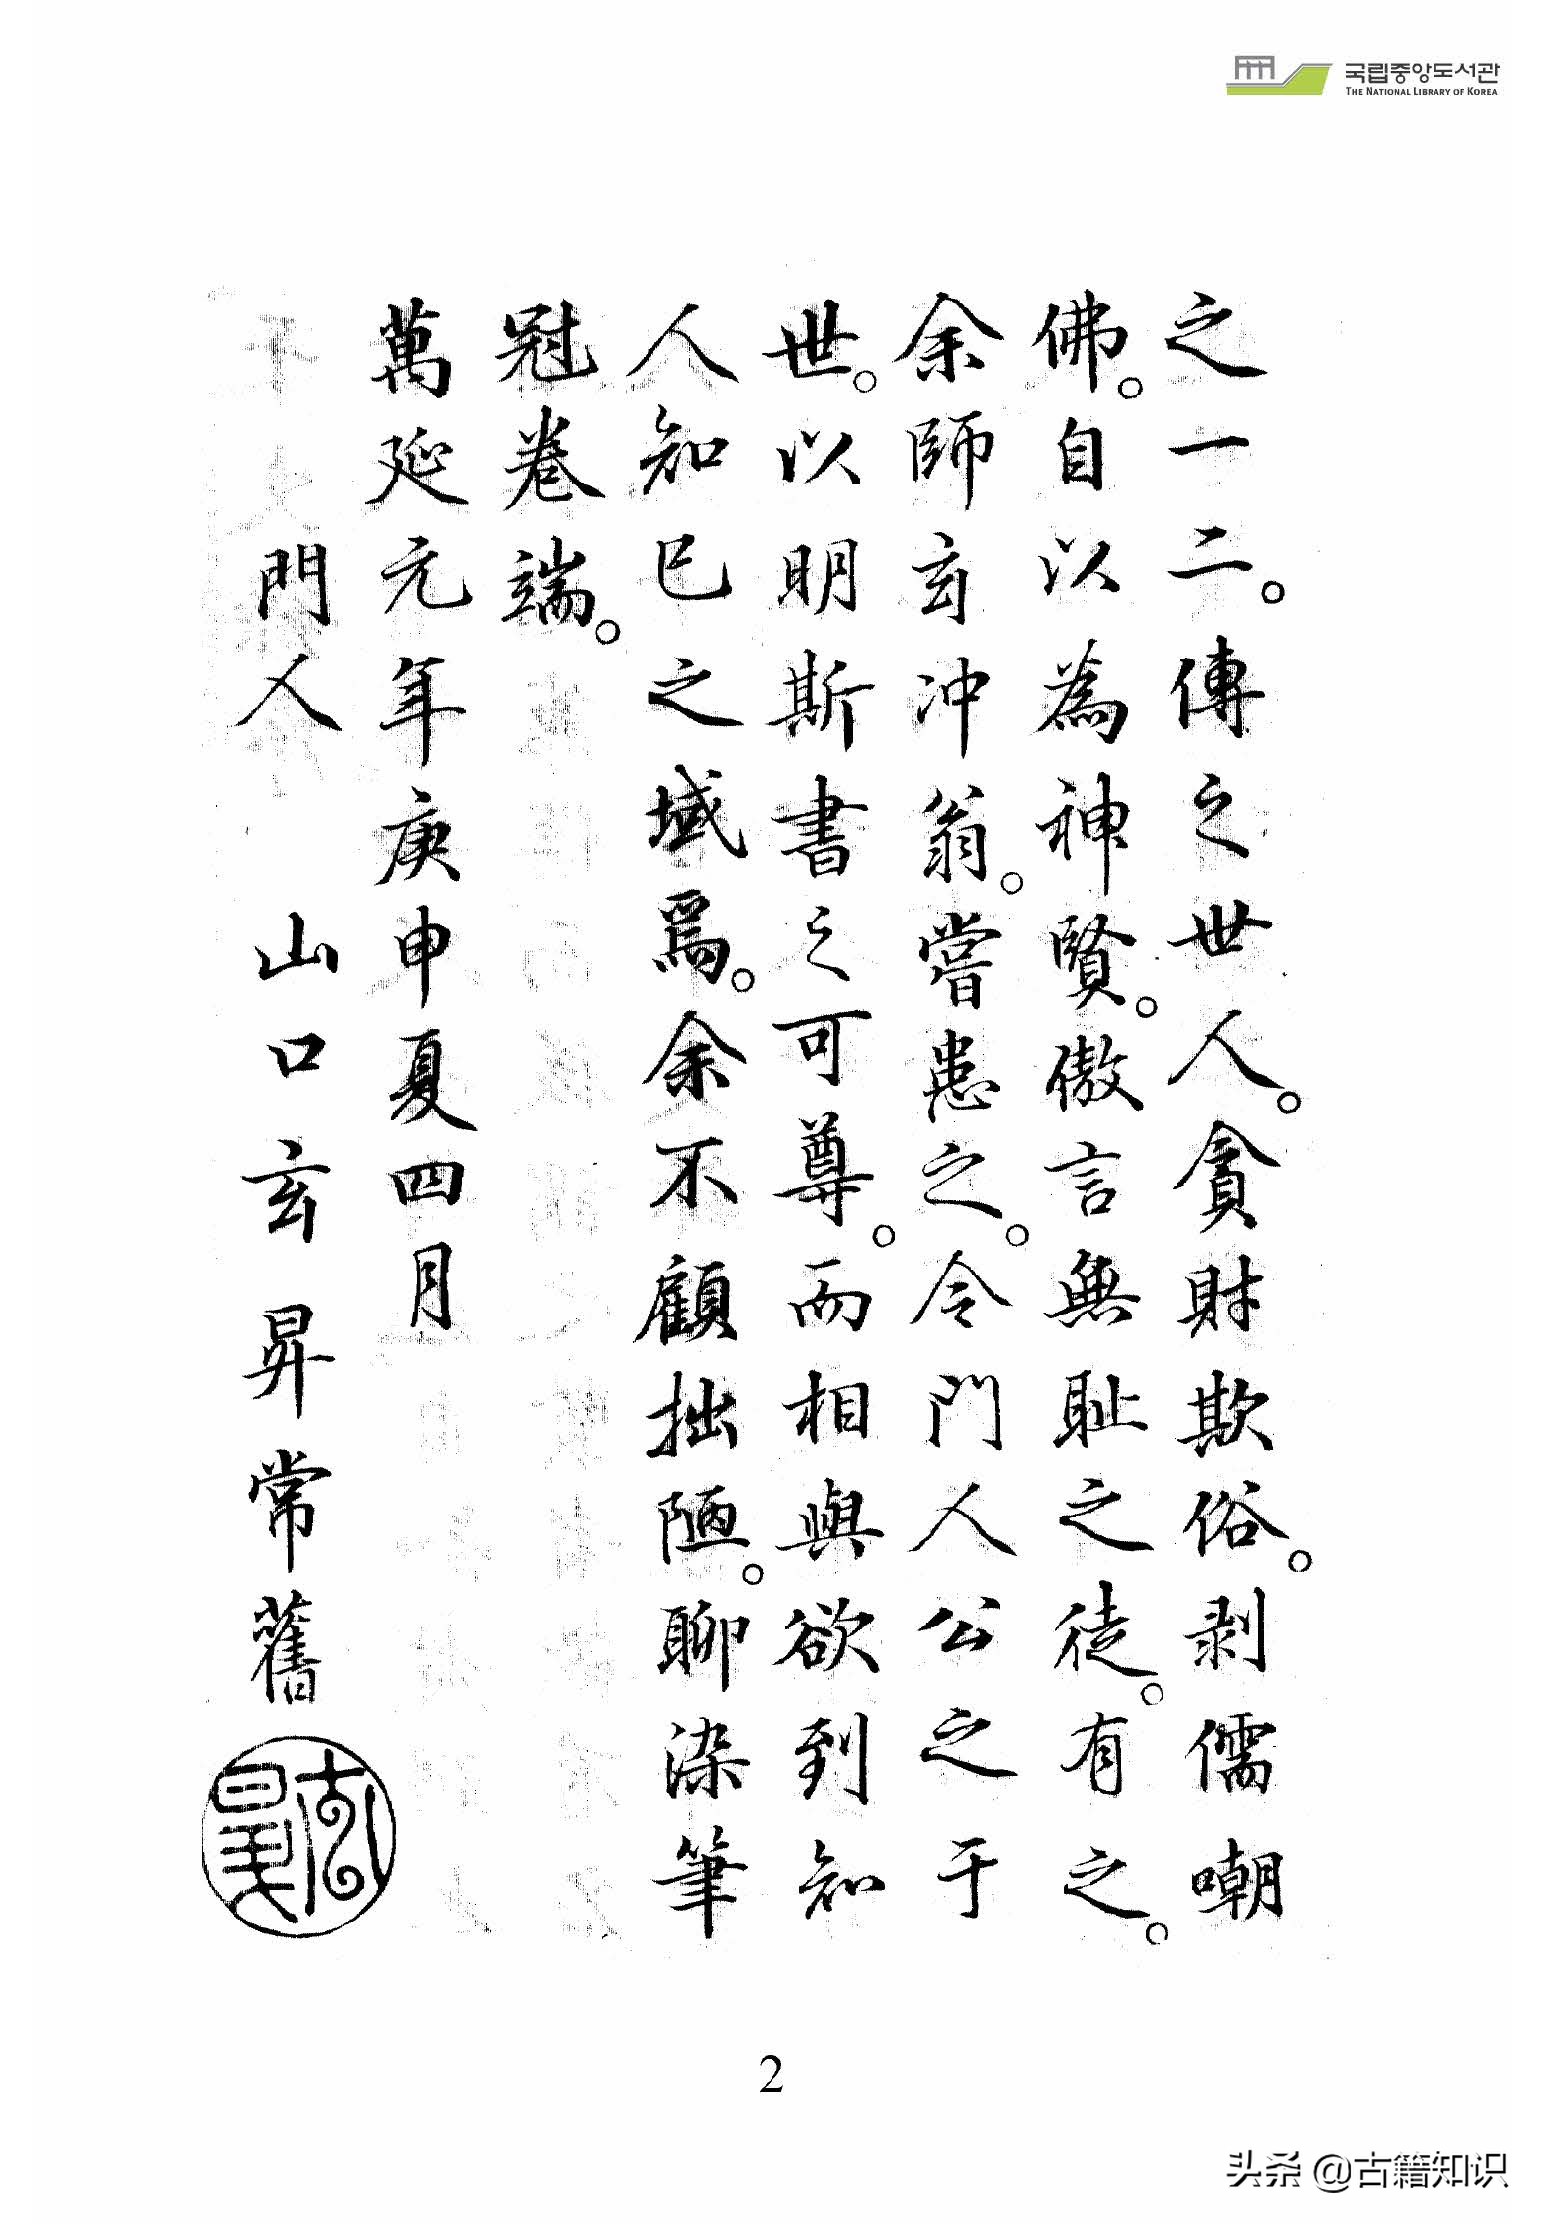 국립중앙도서관
THE NATIONAL LIBRARY OF KOREA
之一二。傳之世人。貪財欺俗。剥儒嘲
佛。自以為神賢。傲言無耻之徒。有之。
余師玄冲翁。嘗患之。令門人公之于
世。以明斯書之可尊。而相與欲到知
人知巳之域焉。余不顧拙陋。聊染筆
冠卷端。
萬延元年庚申夏四月
門人 山口玄昇常舊
2
头条 @古籍知识